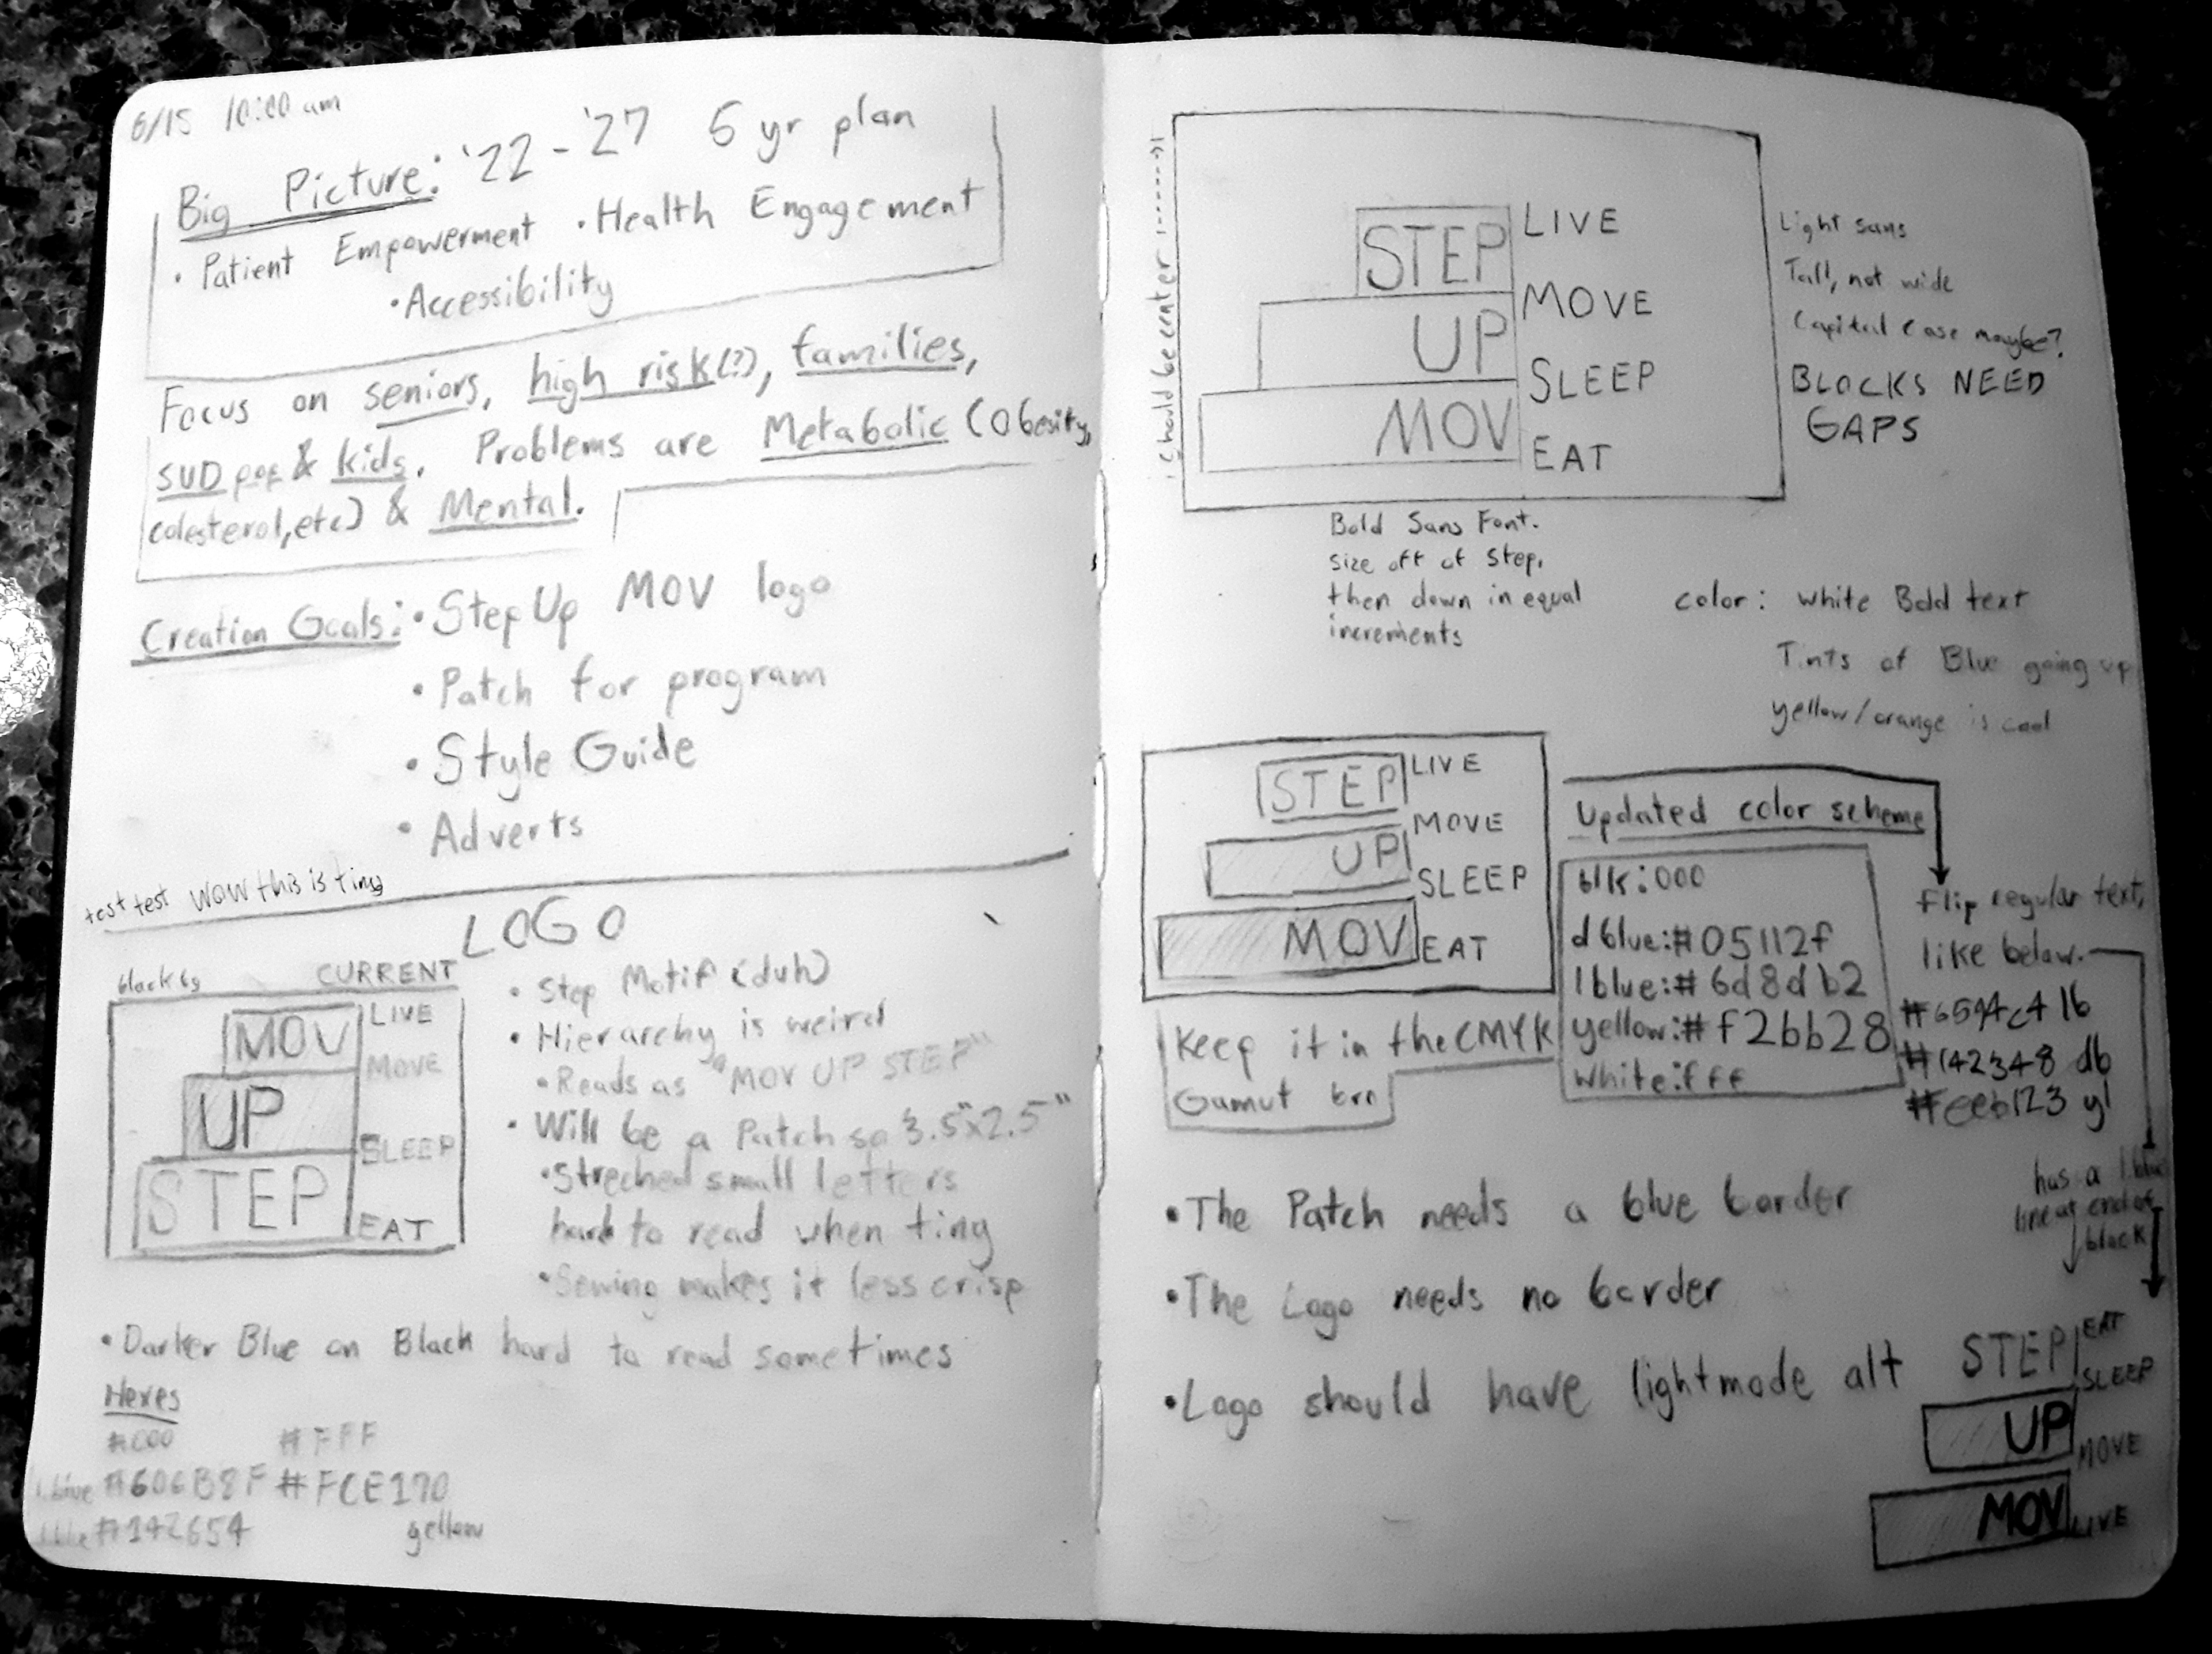 6/15 10:00 am
Big Picture: '22 - '27 5 yr plan
• Patient Empowerment • Health Engagement
• Accessibility
Focus on seniors, high risk(?), families,
SUD pop & kids. Problems are Metabolic (Obesity,
colesterol, etc) & Mental.
Creation Goals: • Step Up MOV logo
• Patch for program
• Style Guide
• Adverts
test test WOW this is tiny
LOGO
black bg CURRENT
MOV
UP
STEP
LIVE
MOVE
SLEEP
EAT
• Step Motif (duh)
• Hierarchy is weird
• Reads as "MOV UP STEP"
• Will be a Patch so 3.5"x2.5"
• Streched small letters
hard to read when tiny
• Sewing makes it less crisp
• Darker Blue on Black hard to read sometimes
Hexes
#000 #FFF
l.blue #606B8F #FCE170
yellow
d.blue #142654
should be center
STEP
UP
MOV
LIVE
MOVE
SLEEP
EAT
Light sans
Tall, not wide
Capital Case maybe?
BLOCKS NEED
GAPS
Bold Sans Font.
size off of step,
then down in equal
increments
color: white Bold text
Tints of Blue going up
yellow/orange is cool
STEP
UP
MOV
LIVE
MOVE
SLEEP
EAT
Updated color scheme
blk:000
dblue:#05112f
lblue:#6d8db2
yellow:#f2bb28
white:fff
Keep it in the CMYK
Gamut brn
Flip regular text,
like below.
#6594c4 lb
#142348 db
#eeb123 yl
has a l blue
line at end of
black
• The Patch needs a blue border
• The Logo needs no border
• Logo should have lightmode alt
STEP
UP
MOV
EAT
SLEEP
MOVE
LIVE